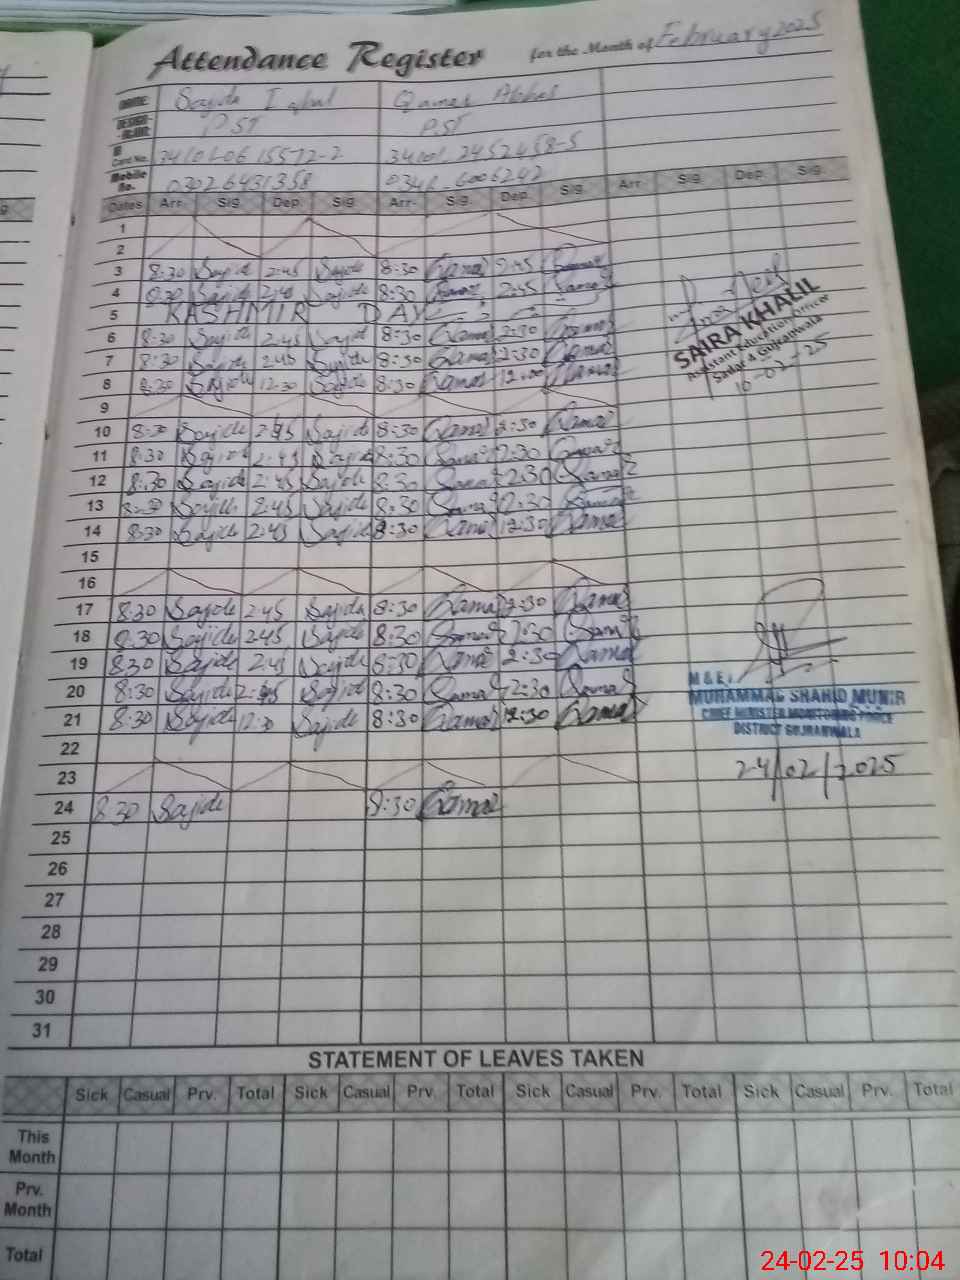 Attendance Register for the Month of February 2025
NAME Sajida Iqbal Qamar Abbas
DESIGNATION PST PST
ID Card No.
Mobile No. 03026431358
Dates Arr. Sig. Dep. Sig. Arr. Sig. Dep. Sig. Arr. Sig. Dep. Sig.
1
2
3 8:30 Sajida 2:45 Sajida 8:30 Qamar 2:45 Qamar
4 8:30 Sajida 2:45 Sajida 8:30 Qamar 2:45 Qamar
5 KASHMIR DAY
6 8:30 Sajida 2:45 Sajida 8:30 Qamar 2:30 Qamar
7 8:30 Sajida 2:45 Sajida 8:30 Qamar 2:30 Qamar
8 8:30 Sajida 12:30 Sajida 8:30 Qamar Qamar
SAIRA KHALIL
Assistant Education Officer
Sadar-4 Gujranwala
10-02-25
9
10 8:30 Sajida 2:45 Sajida 8:30 Qamar 2:30 Qamar
11 8:30 Sajida 2:45 Sajida 8:30 Qamar 2:30 Qamar
12 8:30 Sajida 2:45 Sajida 8:30 Qamar 2:30 Qamar
13 8:30 Sajida 2:45 Sajida 8:30 Qamar 2:30 Qamar
14 8:30 Sajida 2:45 Sajida 8:30 Qamar 12:30 Qamar
15
16
17 8:30 Sajida 2:45 Sajida 8:30 Qamar 2:30 Qamar
18 8:30 Sajida 2:45 Sajida 8:30 Qamar 2:30 Qamar
19 8:30 Sajida 2:45 Sajida 8:30 Qamar 2:30 Qamar
20 8:30 Sajida 2:45 Sajida 8:30 Qamar 2:30 Qamar
21 8:30 Sajida 12:30 Sajida 8:30 Qamar 12:30 Qamar
M & E
MUHAMMAD SHAHID MUNIR
CHIEF MINISTER MONITORING FORCE
DISTRICT GUJRANWALA
24/02/2025
22
23
24 8:30 Sajida 8:30 Qamar
25
26
27
28
29
30
31
STATEMENT OF LEAVES TAKEN
Sick Casual Prv. Total Sick Casual Prv. Total Sick Casual Prv. Total Sick Casual Prv. Total
This Month
Prv. Month
Total
24-02-25 10:04